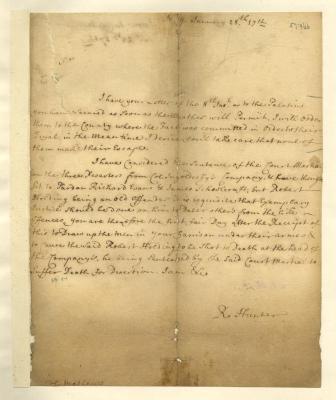 January 28th 17
I have your letter of the 11th Inst. as to the Palatins
you have secured as soon as the Weather will Permit, I will order
them to the County where the Fact was committed in order to their
Tryal, in the mean time I desire you'l take care that none of
them make their Escape.
I have Considered the Sentence of the Court Martial
on the three Deserters from Col. Company & have thought
fit to Pardon Richard Evans & James but Robert
Hording being an old Offender it is requisite that Exemplary
Justice should be done on him to deter others from the like
offences, you are therefore the first fair Day after the Receipt of
this to Draw up the men in your Garrison under their armes &
to cause the said Robert Hording to be Shot to Death at the head of
the Companys, he being Sentenced by the said Court Martial to
suffer Death for Desertion. I am &c
Ro Hunter
Col Mathews